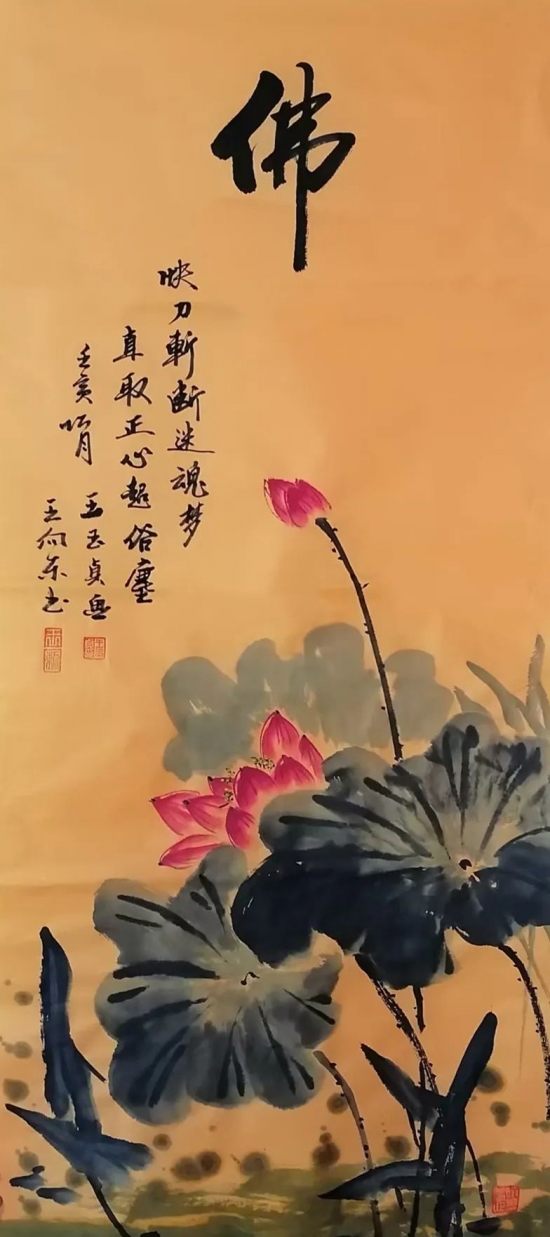 佛
快刀斬断迷魂梦
直取正心超俗塵
壬寅
王玉贞画
王向东书